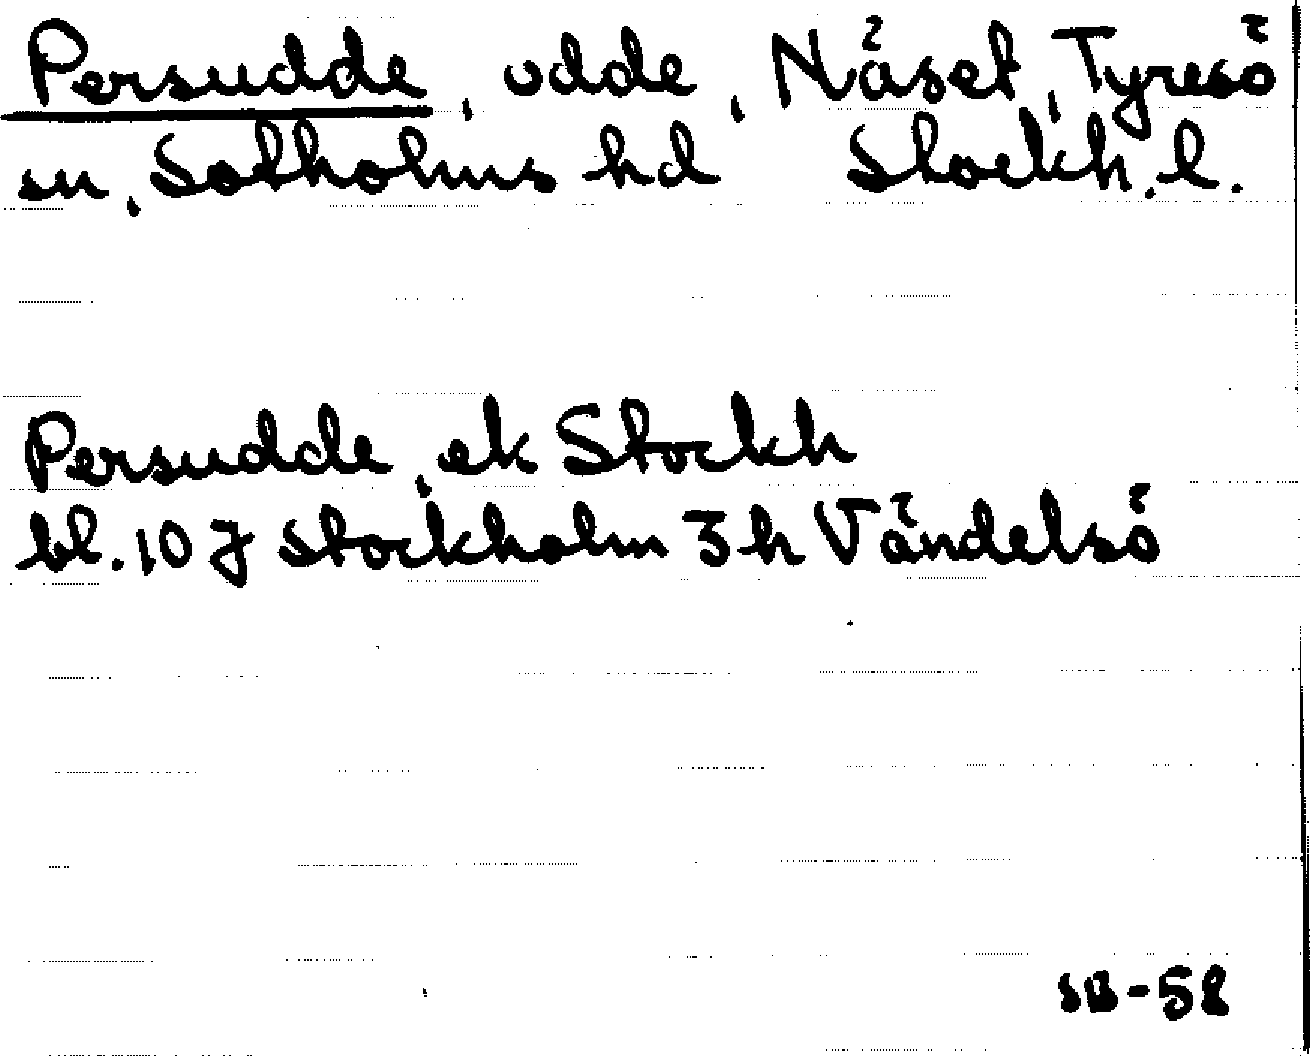 Persudde, udde, Näset, Tyresö
sn, Sotholms hd Stockh. l.
Persudde, ek Stockh
bl. 10 J Stockholm 3 h Vändelsö
SB-58